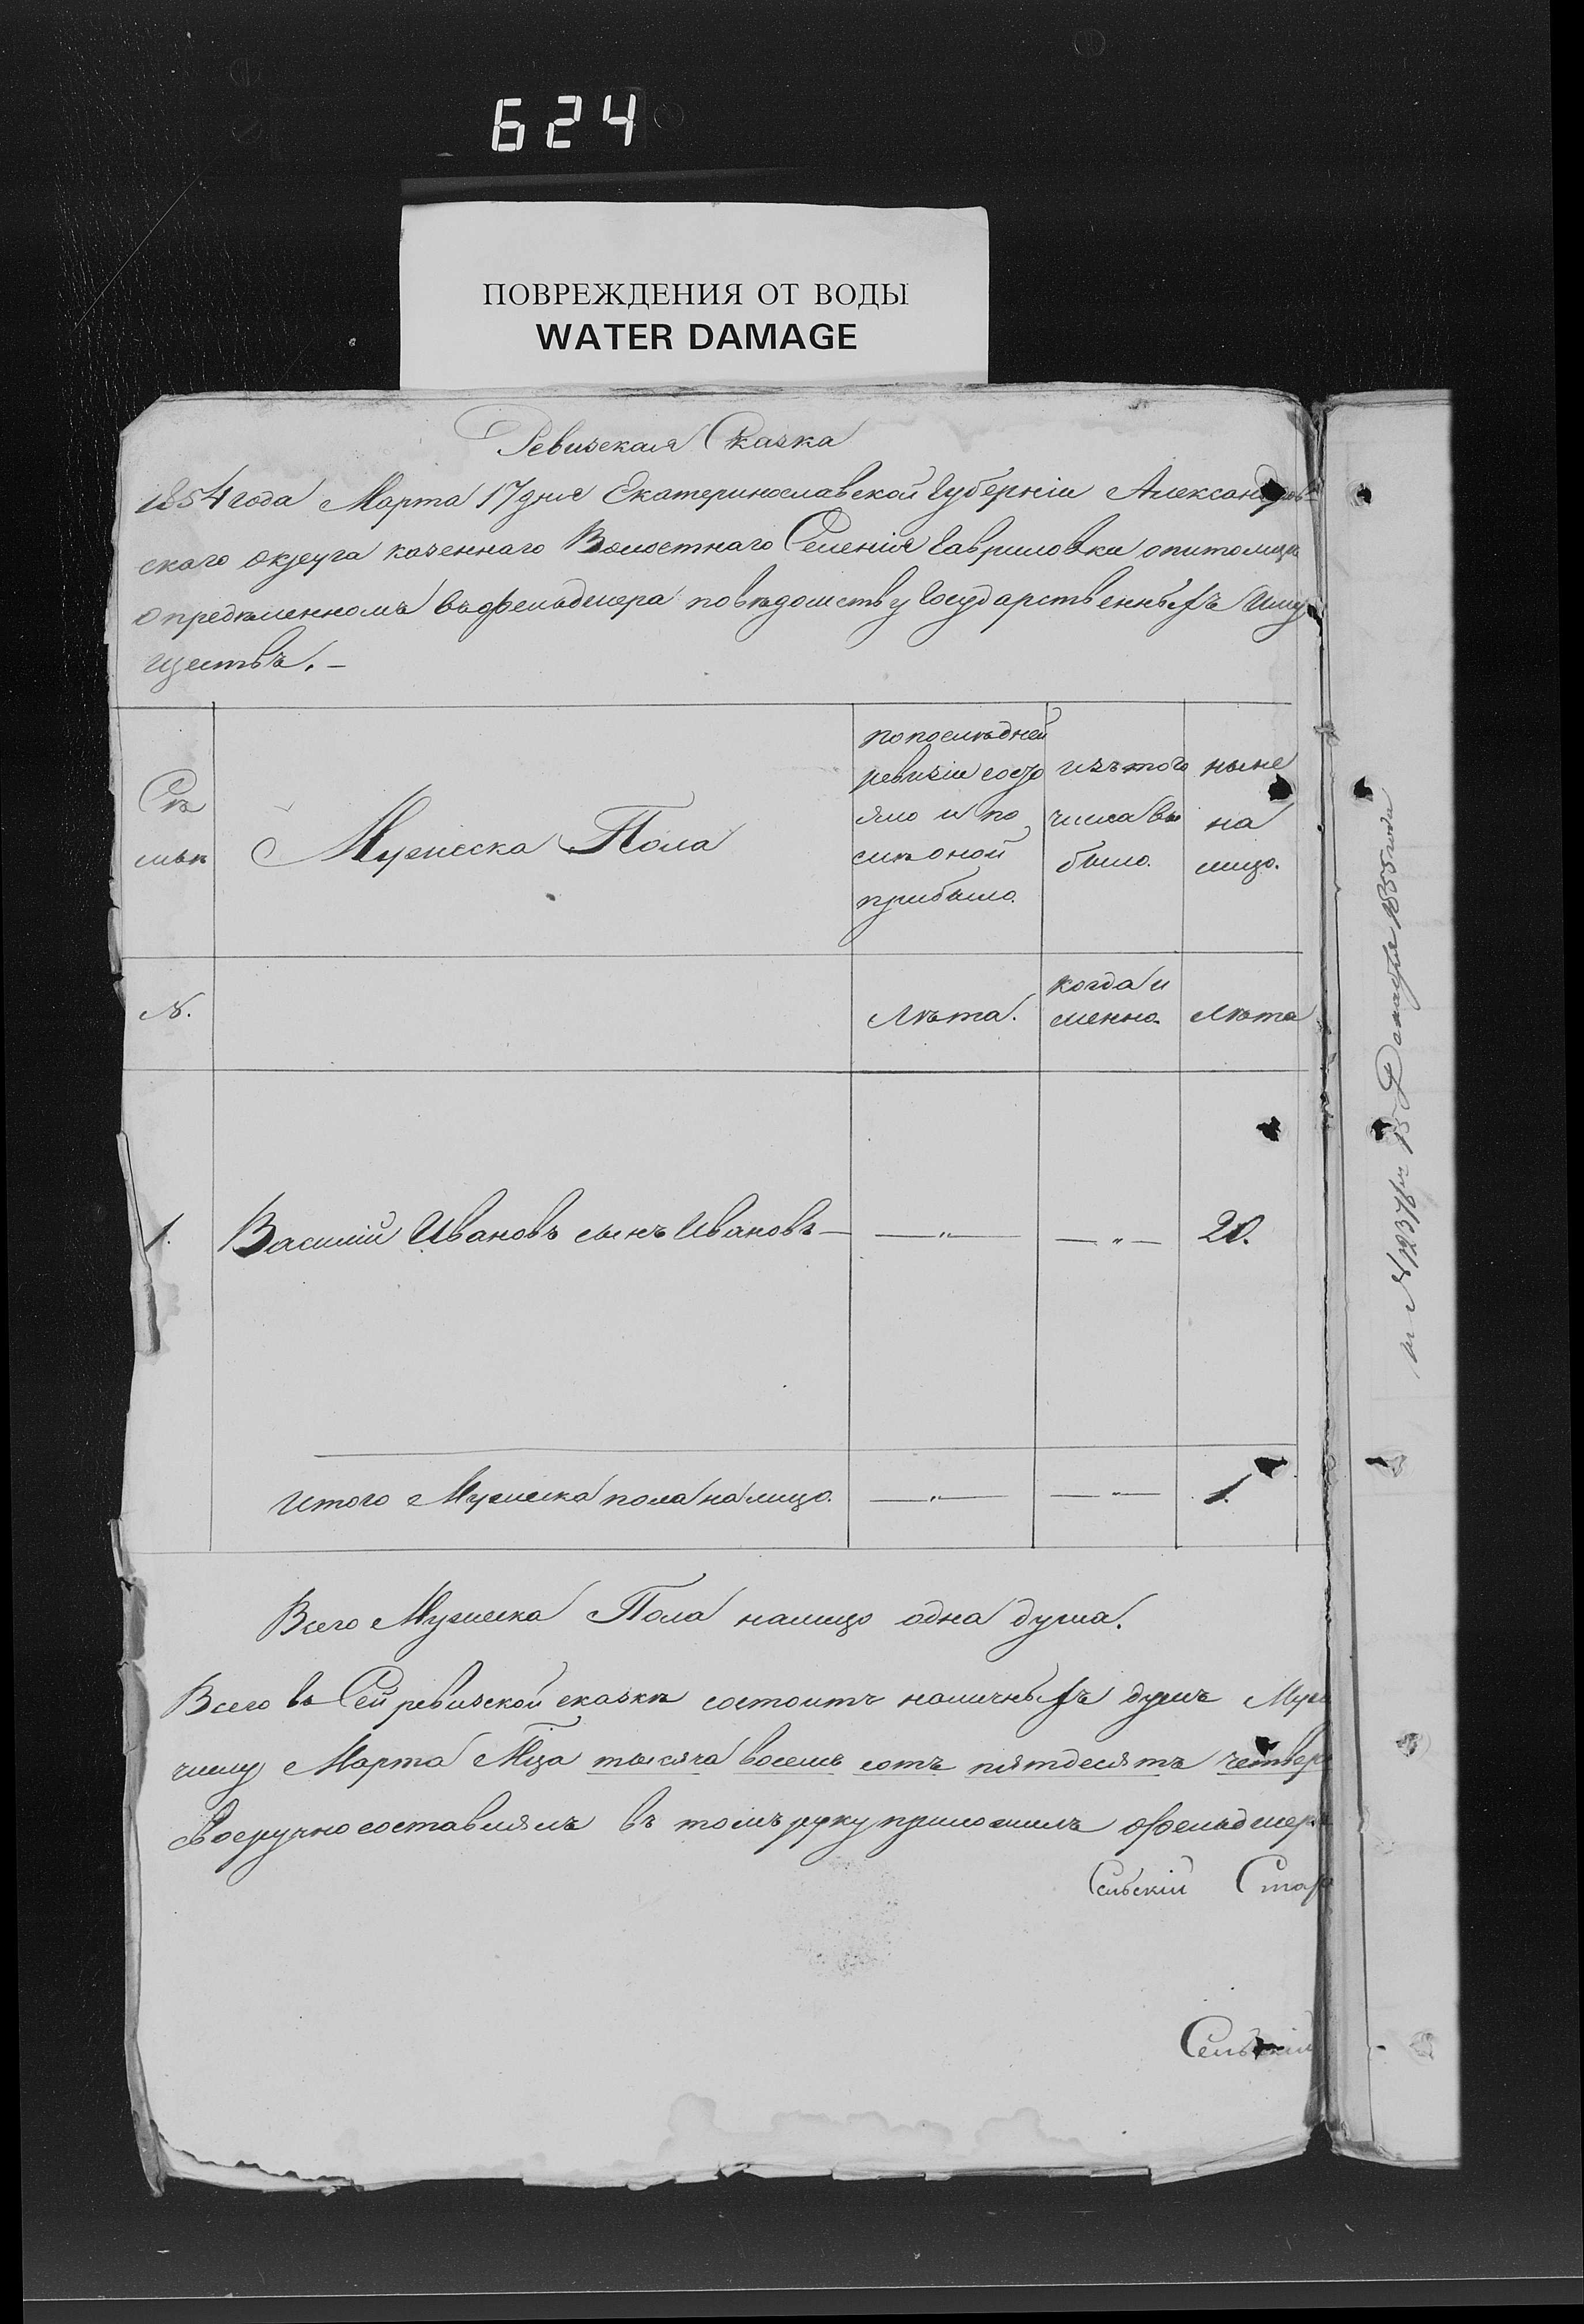 624
ПОВРЕЖДЕНИЯ ОТ ВОДЫ
WATER DAMAGE
Ревизская Сказка
1854 года Марта 17 дня Екатеринославской Губерніи Александров
скаго округа казеннаго Волостнаго Селенія Гавриловки опитомце
определенномъ въ фельдшера по вѣдомству Государственныхъ Иму
ществъ. —
Се
мьи
Мужеска Пола
по последней
ревизіи состо
яло и по
слѣ оной
прибыло.
изъ того
числа вы
было.
ныне
на
лицо.
N.
Лѣта.
когда и
менно.
Лѣта
1. Василій Ивановъ сынъ Ивановъ — — " — — " — 20.
Итого Мужеска пола на лицо. — " — — " — 1.
Всего Мужеска Пола налицо одна душа.
Всего въ Сей ревизской сказке состоитъ наличныхъ душъ Муж
числу Марта Мца тысяча восемь сотъ пятдесятъ четвер
своеручно составлялъ въ томъ руку приложилъ фельдшеръ
Сельскій Стар
Сельскій
1855 года